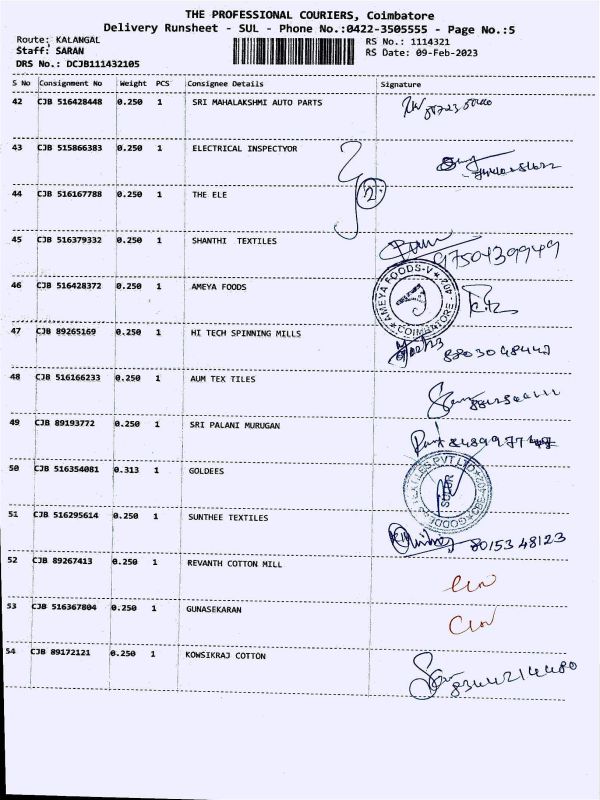 THE PROFESSIONAL COURIERS, Coimbatore
Delivery Runsheet - SUL - Phone No.:0422-3505555 - Page No.:5
Route: KALANGAL RS No.: 1114321
Staff: SARAN RS Date: 09-Feb-2023
DRS No.: DCJB111432105
S No Consignment No Weight PCS Consignee Details Signature
42 CJB 516428448 0.250 1 SRI MAHALAKSHMI AUTO PARTS
43 CJB 515866383 0.250 1 ELECTRICAL INSPECTYOR
44 CJB 516167788 0.250 1 THE ELE 2
45 CJB 516379332 0.250 1 SHANTHI TEXTILES 9750439949
46 CJB 516428372 0.250 1 AMEYA FOODS
AMEYA FOODS-V COIMBATORE
47 CJB 89265169 0.250 1 HI TECH SPINNING MILLS
48 CJB 516166233 0.250 1 AUM TEX TILES
49 CJB 89193772 0.250 1 SRI PALANI MURUGAN
50 CJB 516354081 0.313 1 GOLDEES
TEXTILES PVT LTD
51 CJB 516295614 0.250 1 SUNTHEE TEXTILES 80153 48123
52 CJB 89267413 0.250 1 REVANTH COTTON MILL
53 CJB 516367804 0.250 1 GUNASEKARAN
54 CJB 89172121 0.250 1 KOWSIKRAJ COTTON